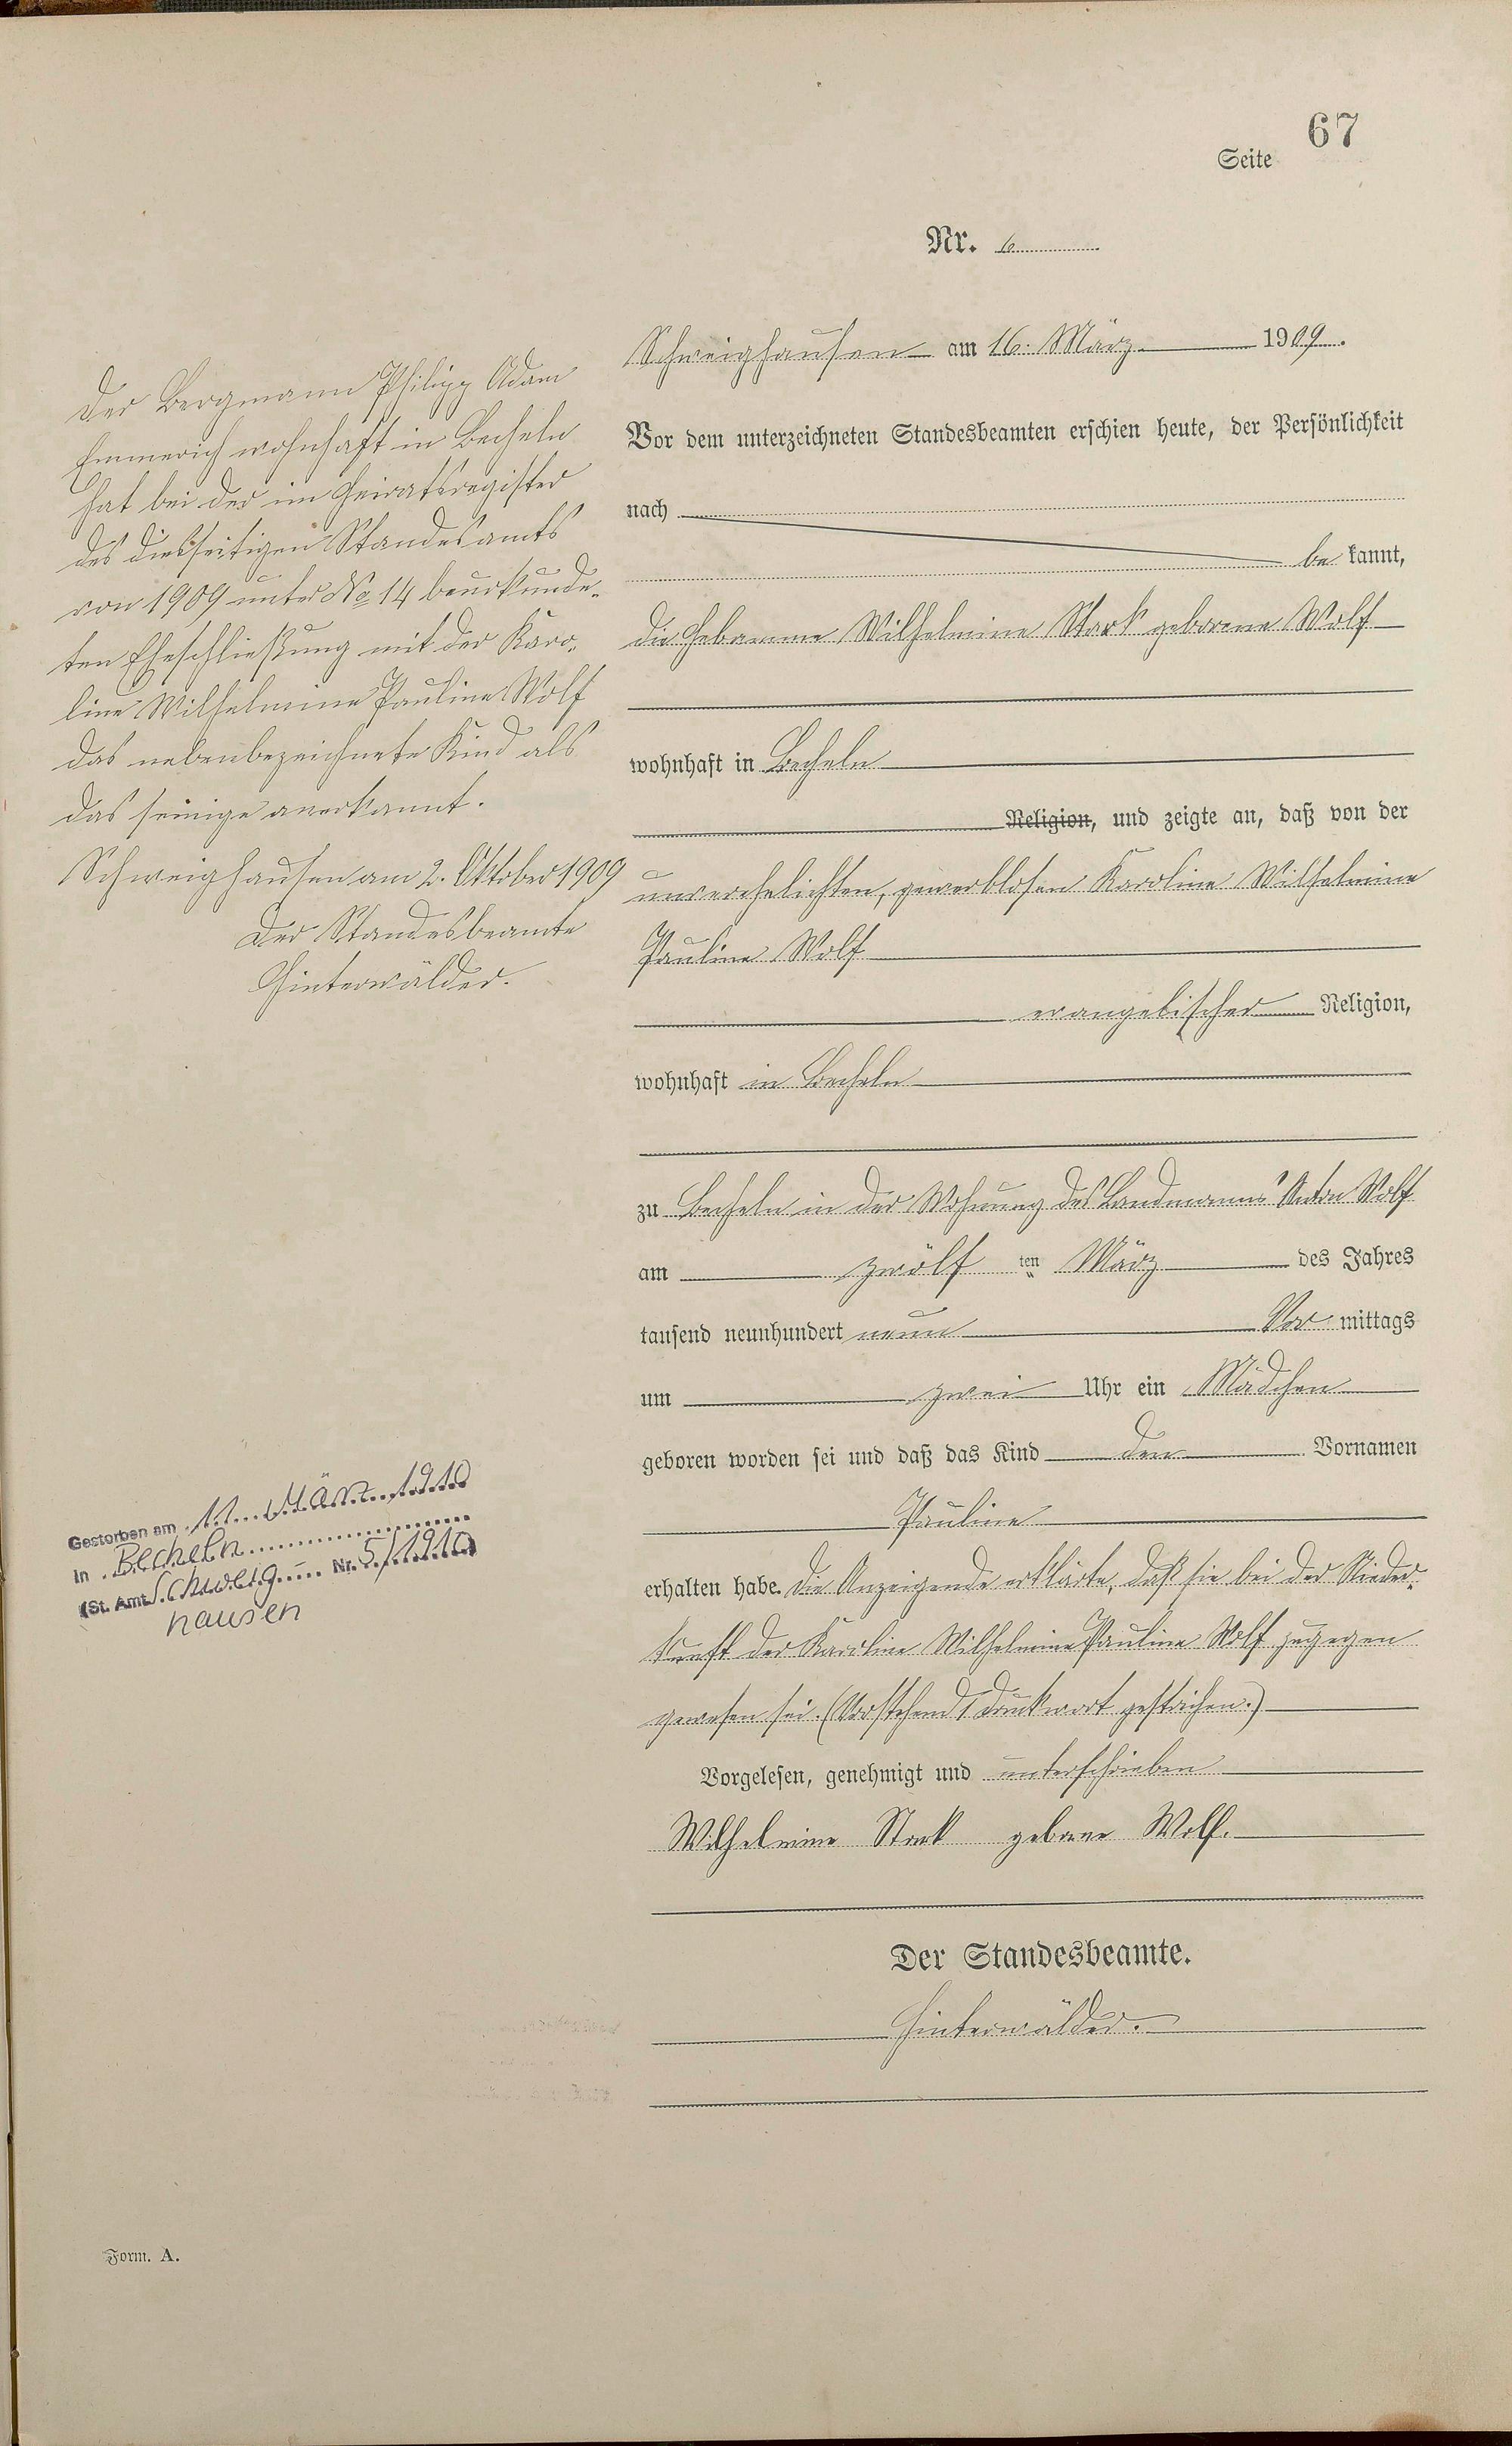 67
Seite
Nr. 6
Schweighausen am 16. März 1909.
Vor dem unterzeichneten Standesbeamten erschien heute, der Persönlichkeit
nach
be kannt,
die Hebamme Wilhelmine Stark geborene Wolf
wohnhaft in Becheln
Religion, und zeigte an, daß von der
unverehelichten, gewerblosen Karoline Wilhelmine
Pauline Wolf
evangelischer Religion,
wohnhaft in Becheln
zu Becheln in der Wohnung des Landmanns Anton Wolf
am zwölf ten März des Jahres
tausend neunhundert neun Vor mittags
um zwei Uhr ein Mädchen
geboren worden sei und daß das Kind den Vornamen
Pauline
erhalten habe. Die Anzeigende erklärte, daß sie bei der Nieder-
kunft der Karoline Wilhelmine Pauline Wolf zugegen
gewesen sei. (Vorstehend 1 Druckwort gestrichen.)
Vorgelesen, genehmigt und unterschrieben
Wilhelmine Stark geborne Wolf.
Der Standesbeamte.
Hinterwälder.
Der Bergmann Philipp Adam
Emmerich wohnhaft in Becheln
hat bei der im Heiratsregister
des diesseitigen Standesamts
von 1909 unter No 14 beurkunde-
ten Eheschließung mit der Karo-
line Wilhelmine Pauline Wolf
das nebenbezeichnete Kind als
das seinige anerkannt.
Schweighausen am 2. Oktober 1909
Der Standesbeamte
Hinterwälder.
Gestorben am 11. März 1910
in Becheln
(St. Amt Schweig- Nr. 5/1910)
hausen
Form. A.